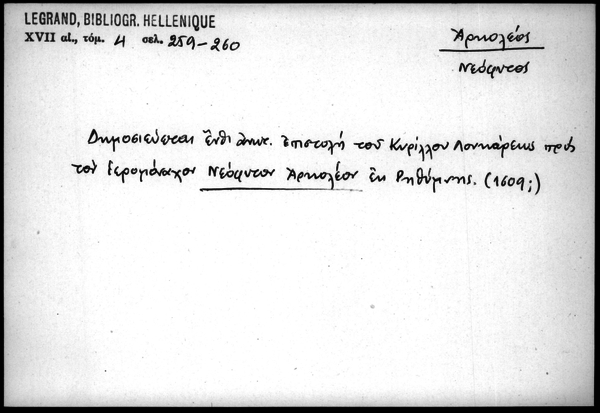 LEGRAND, BIBLIOGR. HELLENIQUE
XVII αἰ., τόμ. 4 σελ. 259-260
Ἀρκολέος
Νεόφυτος
Δημοσιεύεται ἐπιστολὴ τοῦ Κυρίλλου Λουκάρεως πρὸς
τὸν ἱερομόναχον Νεόφυτον Ἀρκολέον ἐκ Ρηθύμνης. (1609;)